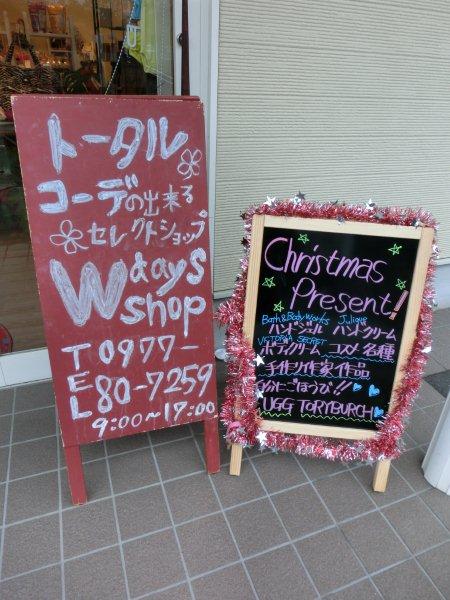 トータル
コーデの出来る
セレクトショップ
Wdays
shop
TEL 0977-
80-7259
9:00~17:00
Christmas
Present!
Bath&BodyWorks Julique
ハンドジェル ハンドクリーム
VICTORIA SECRET
ボディクリーム コスメ各種
手作り作家作品
自分にごほうび!!
UGG TORYBURCH